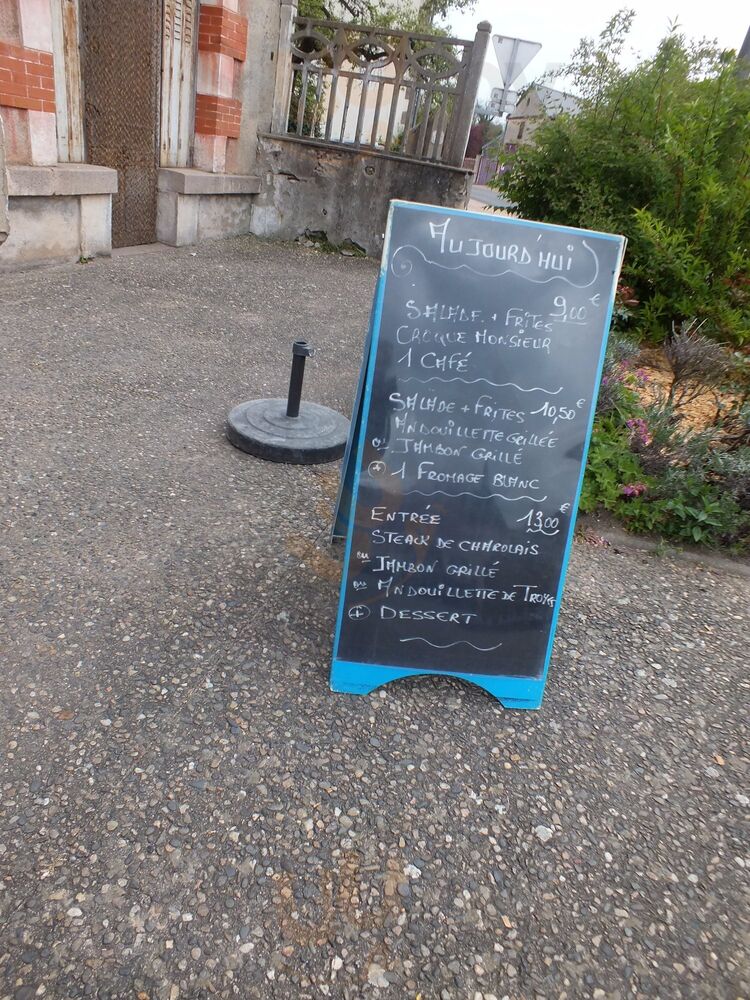 AUJOURD'HUI
9,00 €
SALADE + FRITES
CROQUE MONSIEUR
1 CAFÉ
SALADE + FRITES 10,50 €
ANDOUILLETTE GRILLÉE
ou JAMBON GRILLÉ
+ 1 FROMAGE BLANC
ENTRÉE 13,00 €
STEACK DE CHAROLAIS
ou JAMBON GRILLÉ
ou ANDOUILLETTE DE TROYES
+ DESSERT